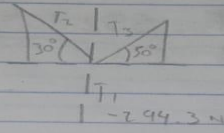 T2 T3
30° 50°
T1
-294.3